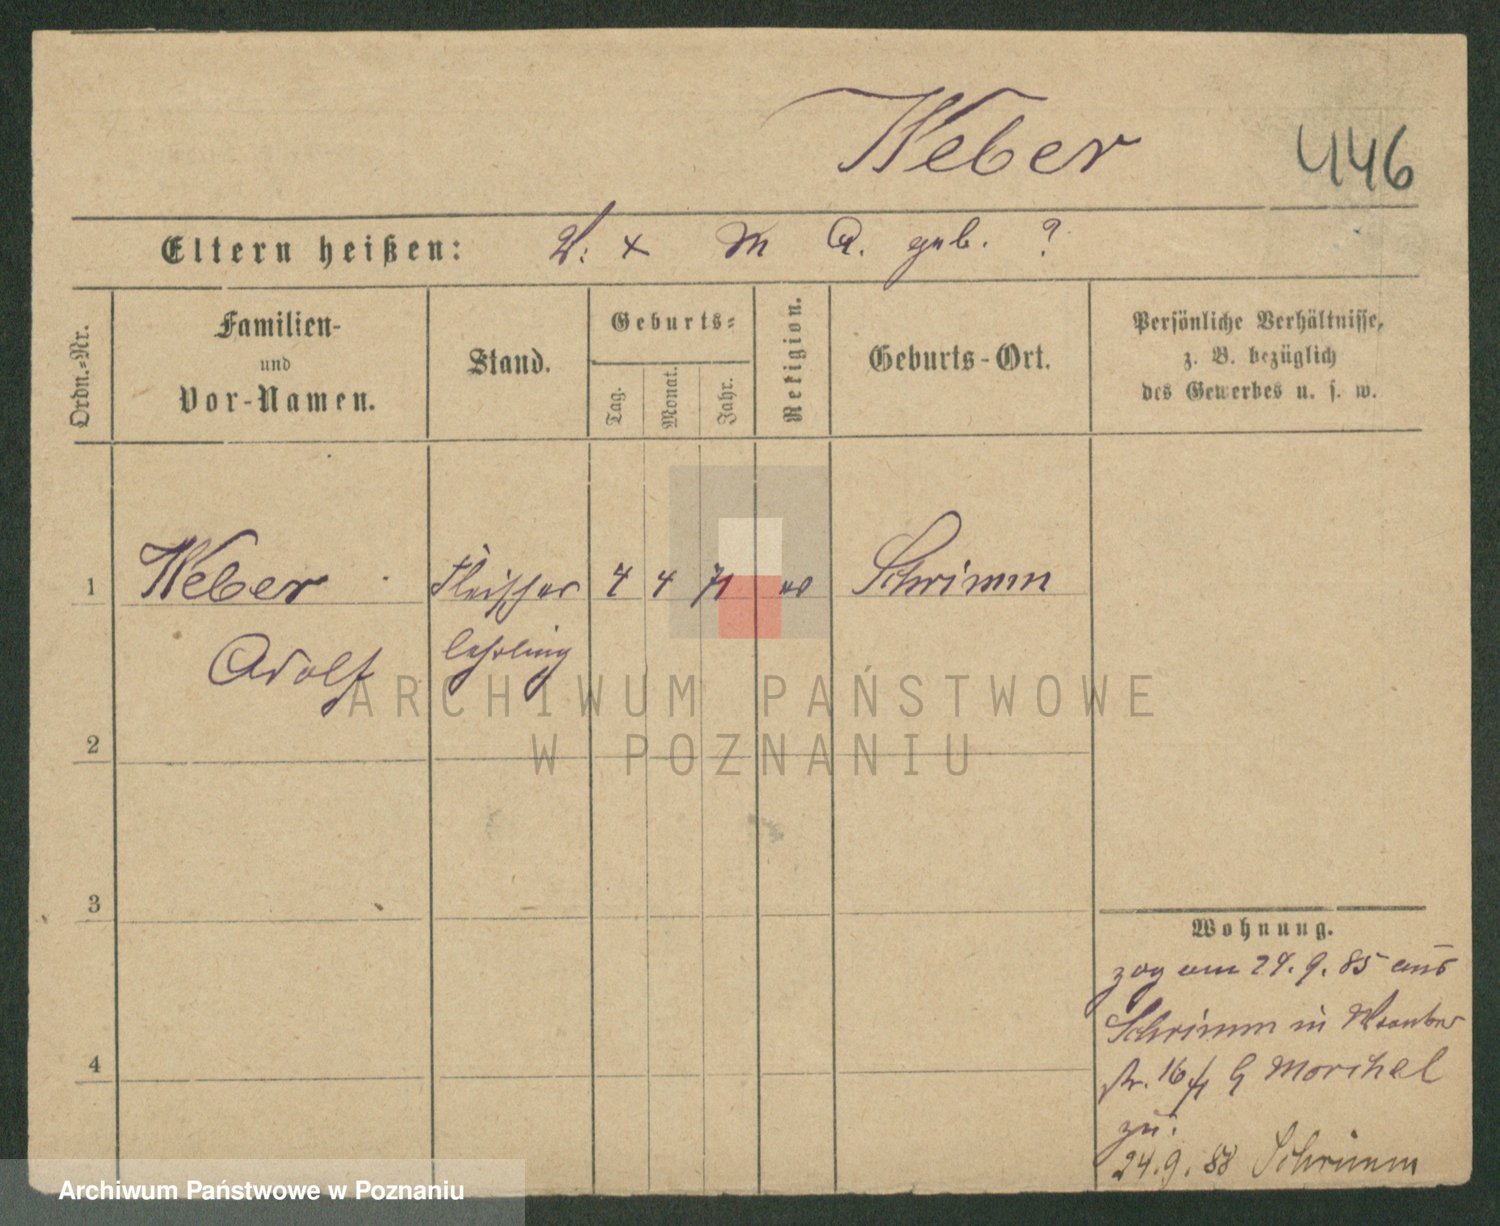 Weber 446
Eltern heißen: V: + M A. geb. ?
Ordn.-Nr.
Familien-
und
Vor-Namen.
Stand.
Geburts-
Tag.
Monat.
Jahr.
Religion.
Geburts-Ort.
Persönliche Verhältnisse,
z. B. bezüglich
des Gewerbes u. s. w.
1 Weber Fleischer 4 4 71 Schrimm
Adolf lehrling
2
3
4
Wohnung.
zog am 24. 9. 85 aus
Schrimm in
str. 16 G Morchel
zu.
24. 9. 88 Schrimm
ARCHIWUM PAŃSTWOWE
W POZNANIU
Archiwum Państwowe w Poznaniu